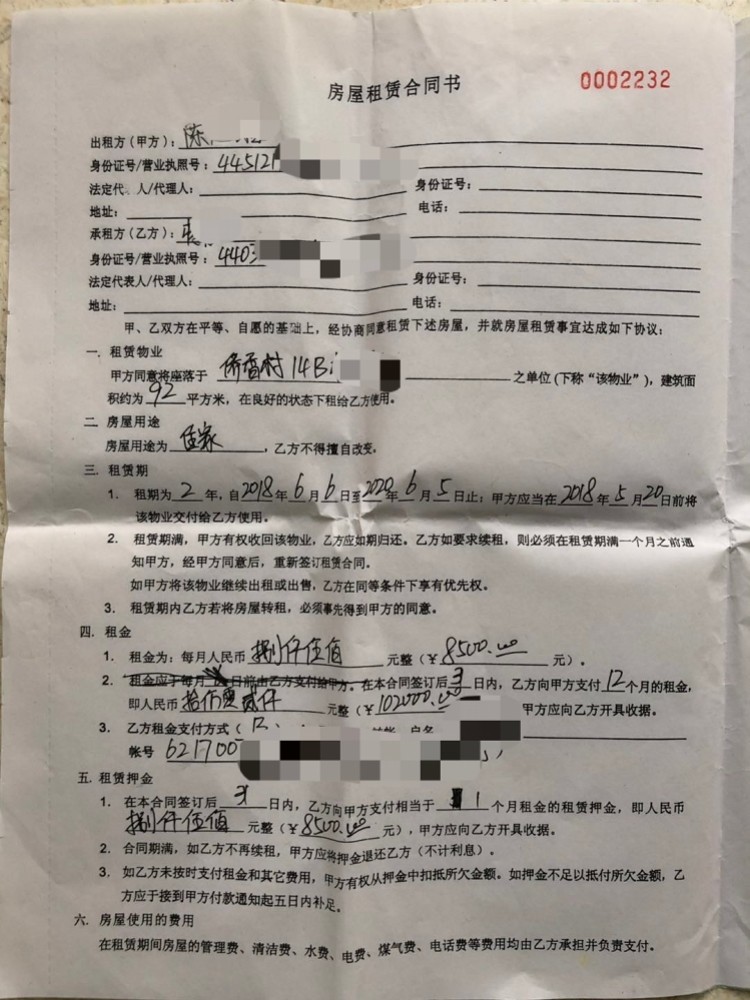 房屋租赁合同书
0002232
出租方(甲方):陈
身份证号/营业执照号:445121
法定代 人/代理人: 身份证号:
地址: 电话:
承租方(乙方):
身份证号/营业执照号:440
法定代表人/代理人: 身份证号:
地址: 电话:
甲、乙双方在平等、自愿的基础上,经协商同意租赁下述房屋,并就房屋租赁事宜达成如下协议:
一. 租赁物业
甲方同意将座落于 侨香村14B 之单位(下称“该物业”),建筑面
积约为 92 平方米,在良好的状态下租给乙方使用。
二. 房屋用途
房屋用途为 住家 ,乙方不得擅自改变.
三. 租赁期
1. 租期为 2 年,自2018年 6 月 6 日至2020年 6 月 5 日止;甲方应当在 2018 年 5 月 20 日前将
该物业交付给乙方使用。
2. 租赁期满,甲方有权收回该物业,乙方应如期归还。乙方如要求续租,则必须在租赁期满一个月之前通
知甲方,经甲方同意后,重新签订租赁合同。
如甲方将该物业继续出租或出售,乙方在同等条件下享有优先权。
3. 租赁期内乙方若将房屋转租,必须事先得到甲方的同意。
四. 租金
1. 租金为:每月人民币 捌仟伍佰 元整(¥ 8500.00 元)。
2. 租金应于每月 日前由乙方支付给甲方。在本合同签订后 3 日内,乙方向甲方支付 12 个月的租金,
即人民币 拾 万零贰仟 元整(¥ 102000.00 甲方应向乙方开具收据。
3. 乙方租金支付方式( 户名
帐号 621700
五. 租赁押金
1. 在本合同签订后 3 日内,乙方向甲方支付相当于 1 个月租金的租赁押金,即人民币
捌仟伍佰 元整(¥ 8500.00 元),甲方应向乙方开具收据。
2. 合同期满,如乙方不再续租,甲方应将押金退还乙方(不计利息)。
3. 如乙方未按时支付租金和其它费用,甲方有权从押金中扣抵所欠金额。如押金不足以抵付所欠金额,乙
方应于接到甲方付款通知起五日内补足。
六. 房屋使用的费用
在租赁期间房屋的管理费、清洁费、水费、电费、煤气费、电话费等费用均由乙方承担并负责支付。